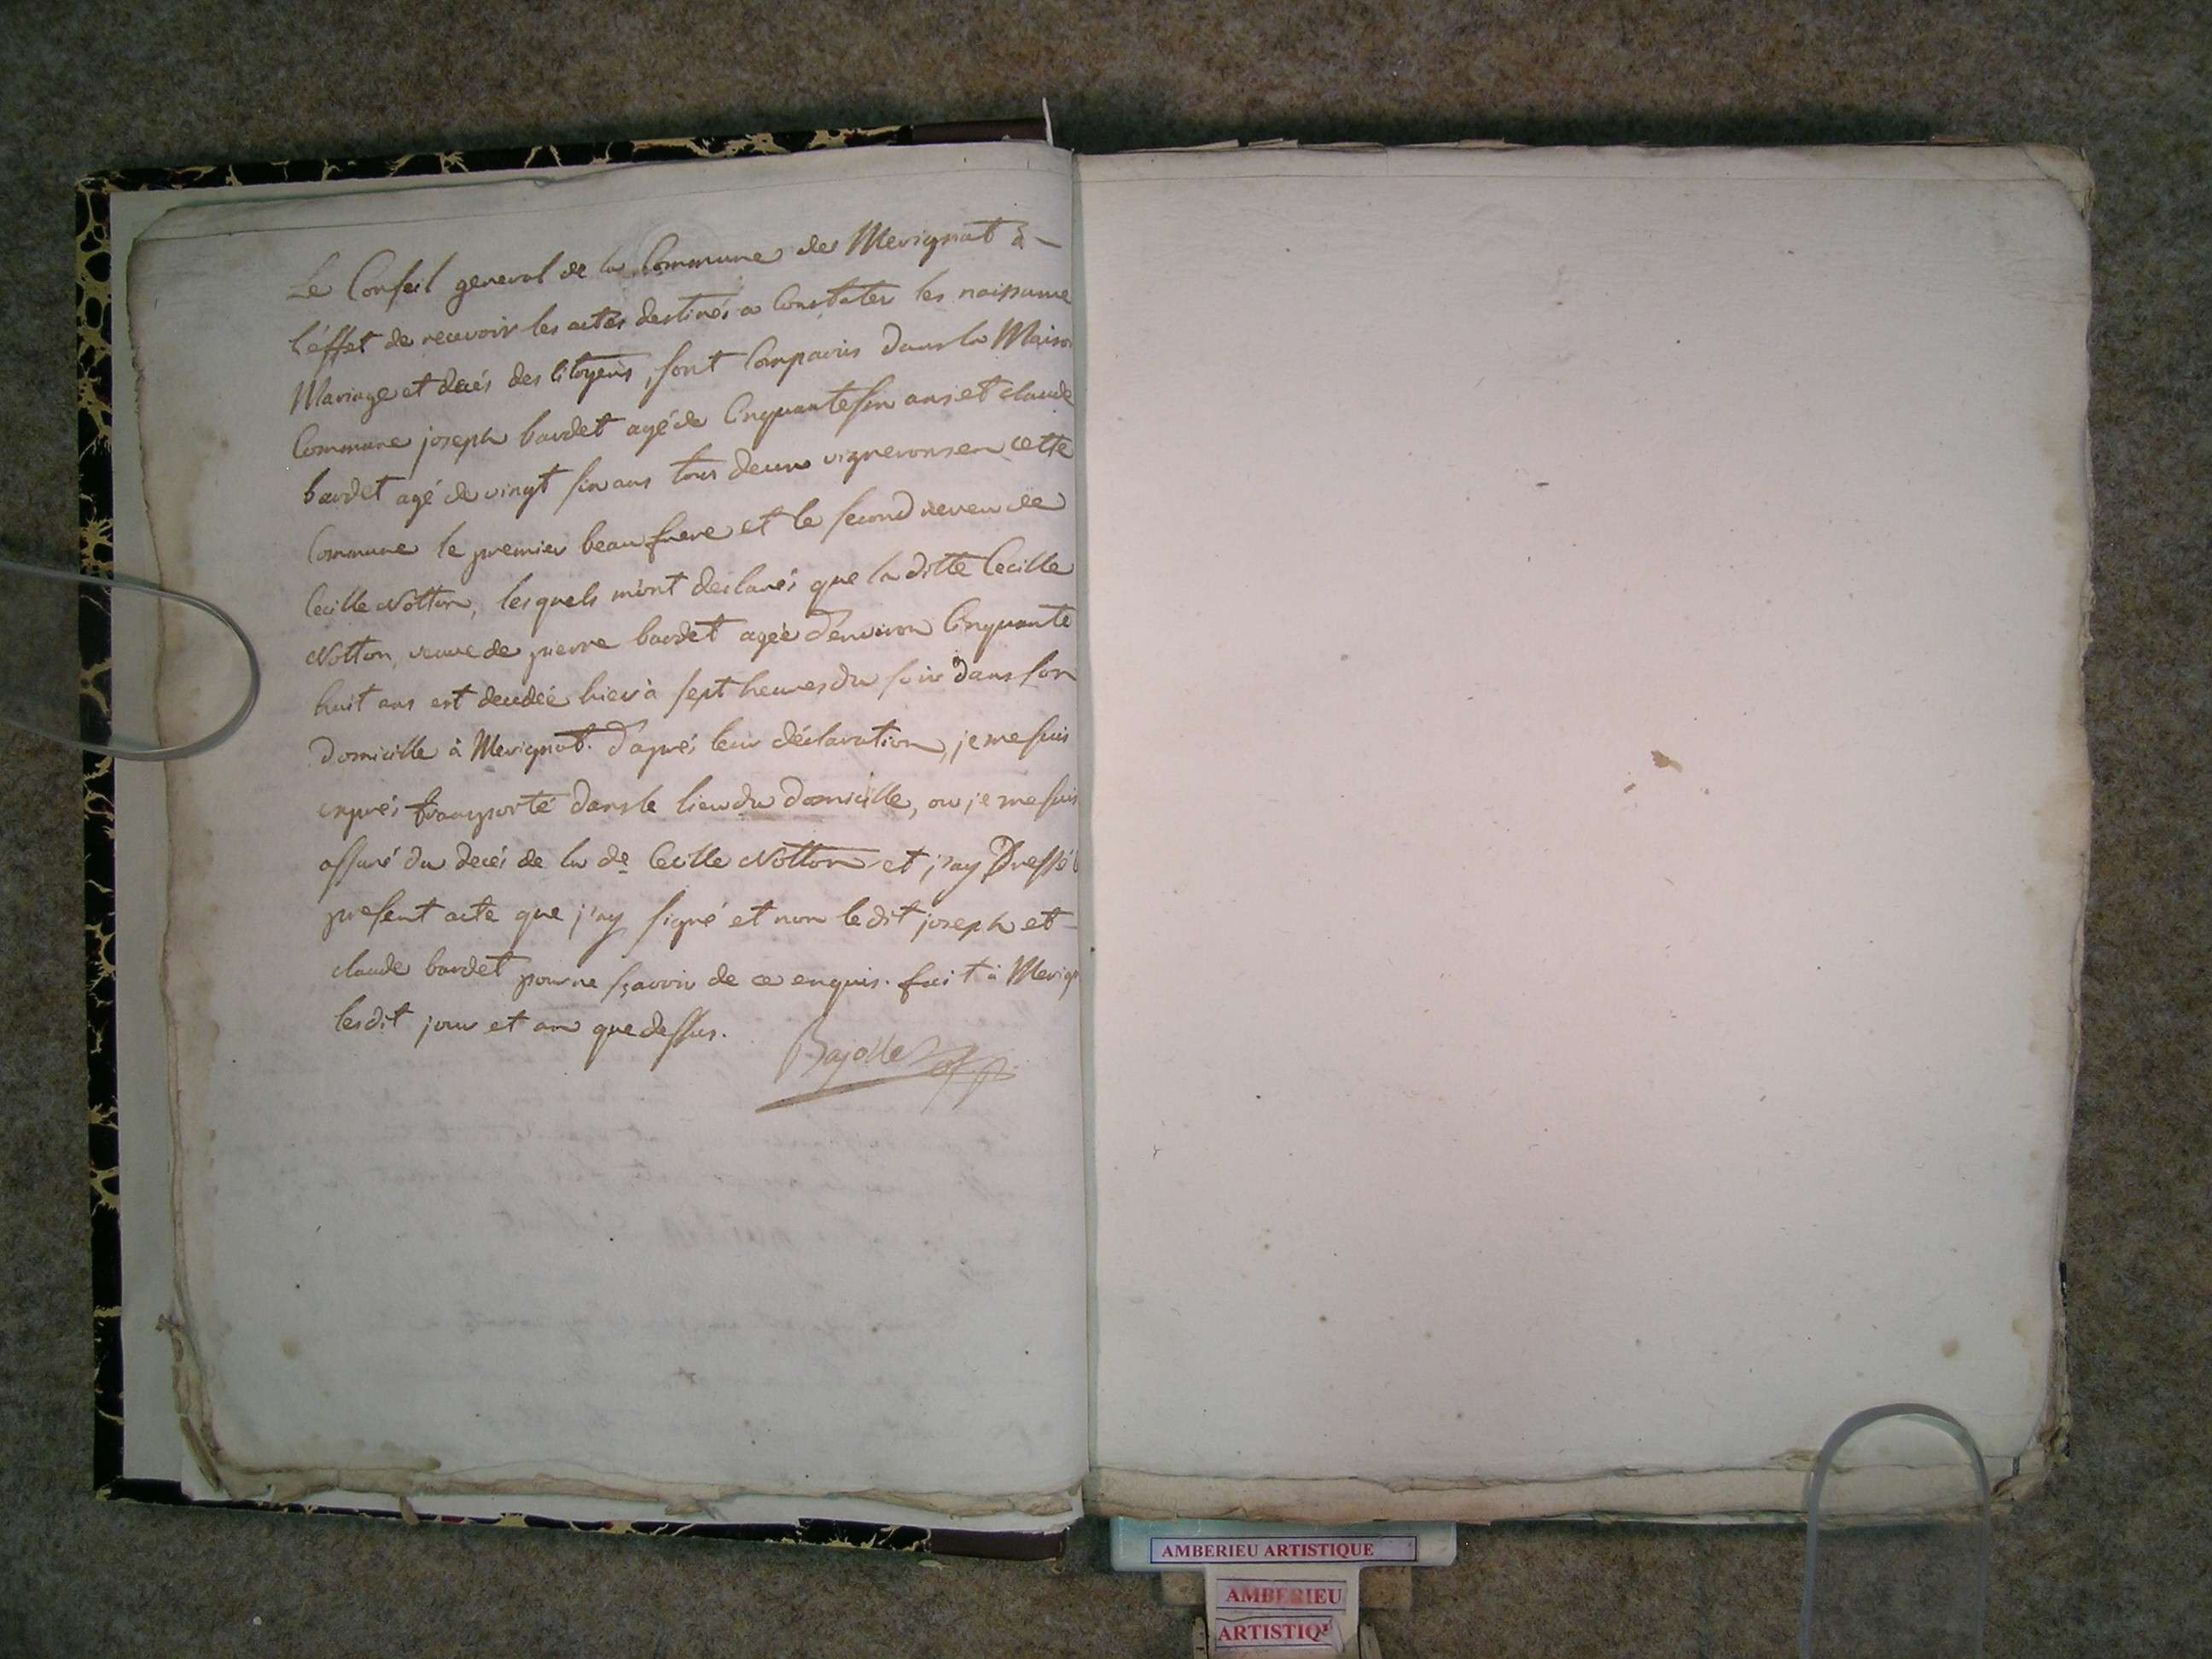 Le Conseil general de la Commune de Merignat à
l'éffet de recevoir les actes destinés a Constater les naissance
Mariage et decés des Citoyens, sont Comparus dans la Maison
Commune joseph bardet agé de Cinquante six ans et claude
bardet agé de vingt six ans tous deux vignerons en cette
Commune le premier beau frere et le second neveu de
Cecille Notton, lesquels m'ont declarés que la ditte Cecille
Notton, veuve de pierre bardet ageé d'environ Cinquante
huit ans est decedeé hier à sept heures du soir dans son
Domicille à Merignat. d'aprés leur déclaration, je me suis
exprés transporté dans le lieu du domicille, ou je me suis
assuré du decés de la de Cecille Notton et j'ay Dressé
present acte que j'ay signé et non le dit joseph et
claude bardet pour ne sçavoir de ce enquis. fait à Merign
lesdit jour et an que dessus.
Bajolle
AMBERIEU ARTISTIQUE
AMBERIEU
ARTISTIQU